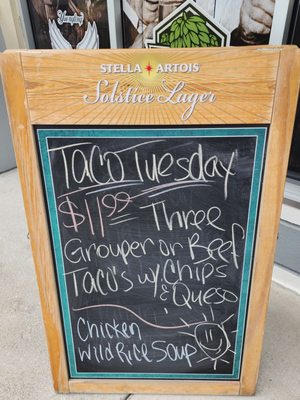 Yuengling
STELLA ARTOIS
Solstice Lager
Taco Tuesday
$11.99 Three
Grouper or Beef
Taco's w/ Chips
& Queso
Chicken
Wild Rice Soup